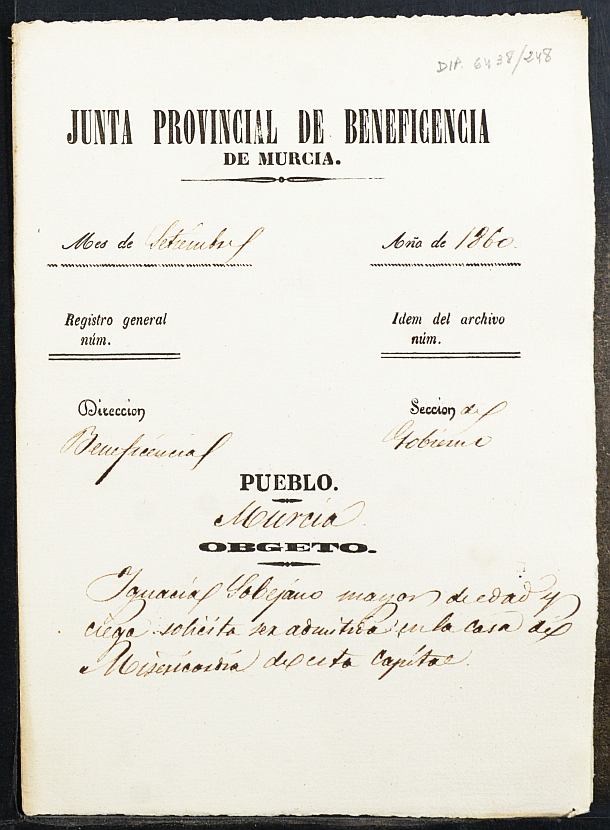 DIP. 6438/248
JUNTA PROVINCIAL DE BENEFICENCIA
DE MURCIA.
Mes de Setiembre Año de 1860.
Registro general Idem del archivo
núm. núm.
Direccion Seccion de
Beneficencia Gobierno
PUEBLO.
Murcia.
OBGETO.
Ignacia Sobejano mayor de edad y
ciega solicita ser admitida en la casa de
Misericordia de esta Capital.